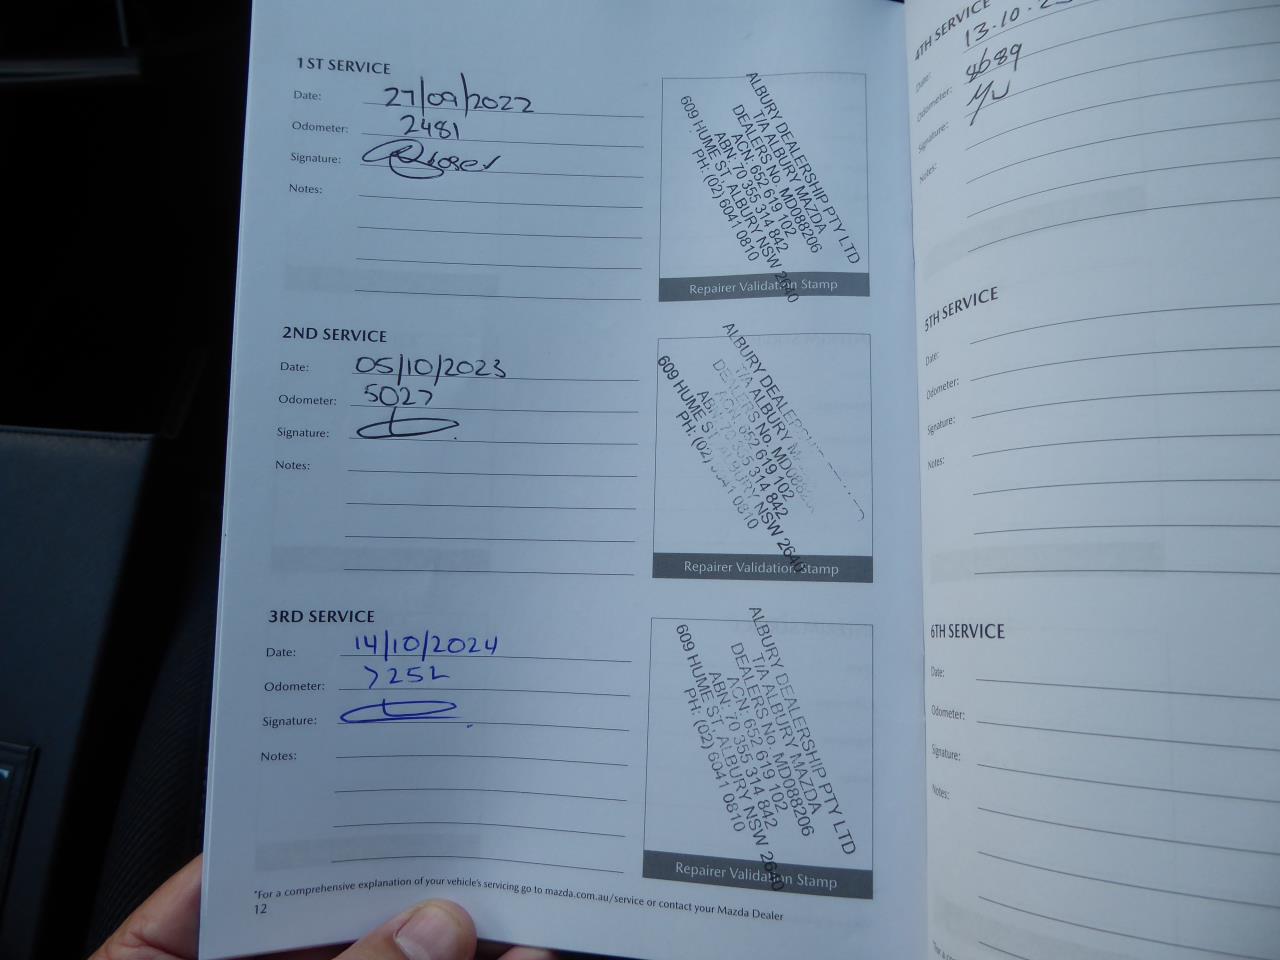 1ST SERVICE
Date: 27/09/2022
Odometer: 2481
Signature:
Notes:
ALBURY DEALERSHIP PTY LTD
T/A ALBURY MAZDA
DEALERS No. MD088206
ACN: 652 619 102
ABN: 70 355 314 842
609 HUME ST, ALBURY NSW 2640
PH: (02) 6041 0810
Repairer Validation Stamp
2ND SERVICE
Date: 05/10/2023
Odometer: 5027
Signature:
Notes:
ALBURY DEALERSHIP
T/A ALBURY M
DEALERS No. MD088206
ACN: 652 619 102
ABN: 70 355 314 842
609 HUME ST, ALBURY NSW 2640
PH: (02) 6041 0810
Repairer Validation Stamp
3RD SERVICE
Date: 14/10/2024
Odometer: 7252
Signature:
Notes:
ALBURY DEALERSHIP PTY LTD
T/A ALBURY MAZDA
DEALERS No. MD088206
ACN: 652 619 102
ABN: 70 355 314 842
609 HUME ST, ALBURY NSW 2640
PH: (02) 6041 0810
Repairer Validation Stamp
*For a comprehensive explanation of your vehicle's servicing go to mazda.com.au/service or contact your Mazda Dealer
12
4TH SERVICE
Date: 13.10.2
Odometer: 8689
Signature:
Notes:
5TH SERVICE
Date:
Odometer:
Signature:
Notes:
6TH SERVICE
Date:
Odometer:
Signature:
Notes: